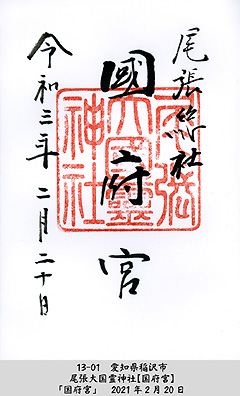 尾張総社
國府宮
令和三年二月二十日
尾張
大國靈
神社
13-01　愛知県稲沢市
尾張大国霊神社【国府宮】
「国府宮」　2021年2月20日